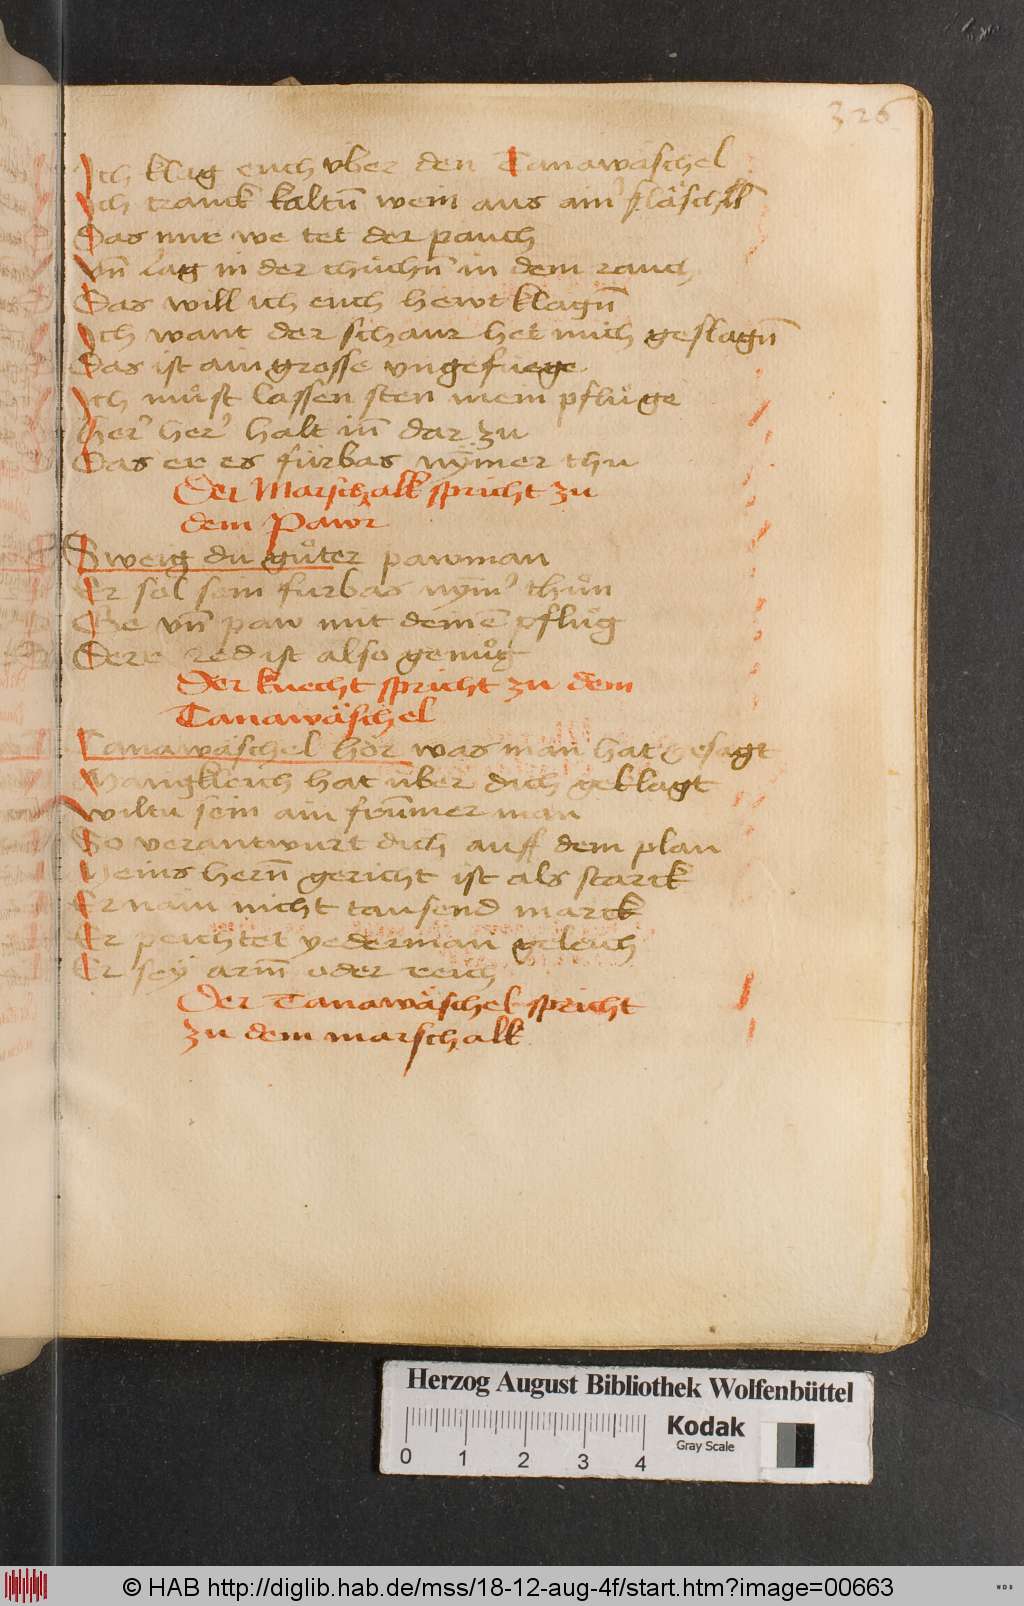 326
Ich klag euch vber den Tanawäschel
Ich tranck kaltn̄ wein aus ainr̕ fläschll
Das mir we tet der pauch
Vn̄ lag in der chuchn̄ in dem rauch
Das will ich euch hewt klagn̄
Ich want der schaur het mich geslagn̄
Das ist ain grosse vngefuege
Ich můst lassen sten mein pflůge
her̕ her̕ halt in̄ dar zu
Das er es furbas nym̄er thu
Der Marschalk spricht zu
dem Pawr
Sweig du gůter pawman
Er sol sein furbas nym̄̕ thůn
Ge vn̄ paw mit deinē pflůg
Dere red ist also genůg
Der knecht spricht zu dem
Tanawäschel
Tanawäschel hör was man hat gesagt
Mangkleich hat über dich geklagt
wiltu sein ain frum̄er man
So verantwurt dich auff dem plan
Meins hern̄ gericht ist als starck
Er näm nicht tausend marck
Er peichtet yederman geleich
Er sey arm̄ oder reich
Der Tanawäschel spricht
zu dem marschalk
Herzog August Bibliothek Wolfenbüttel
Kodak
Gray Scale
0 1 2 3 4
© HAB http://diglib.hab.de/mss/18-12-aug-4f/start.htm?image=00663